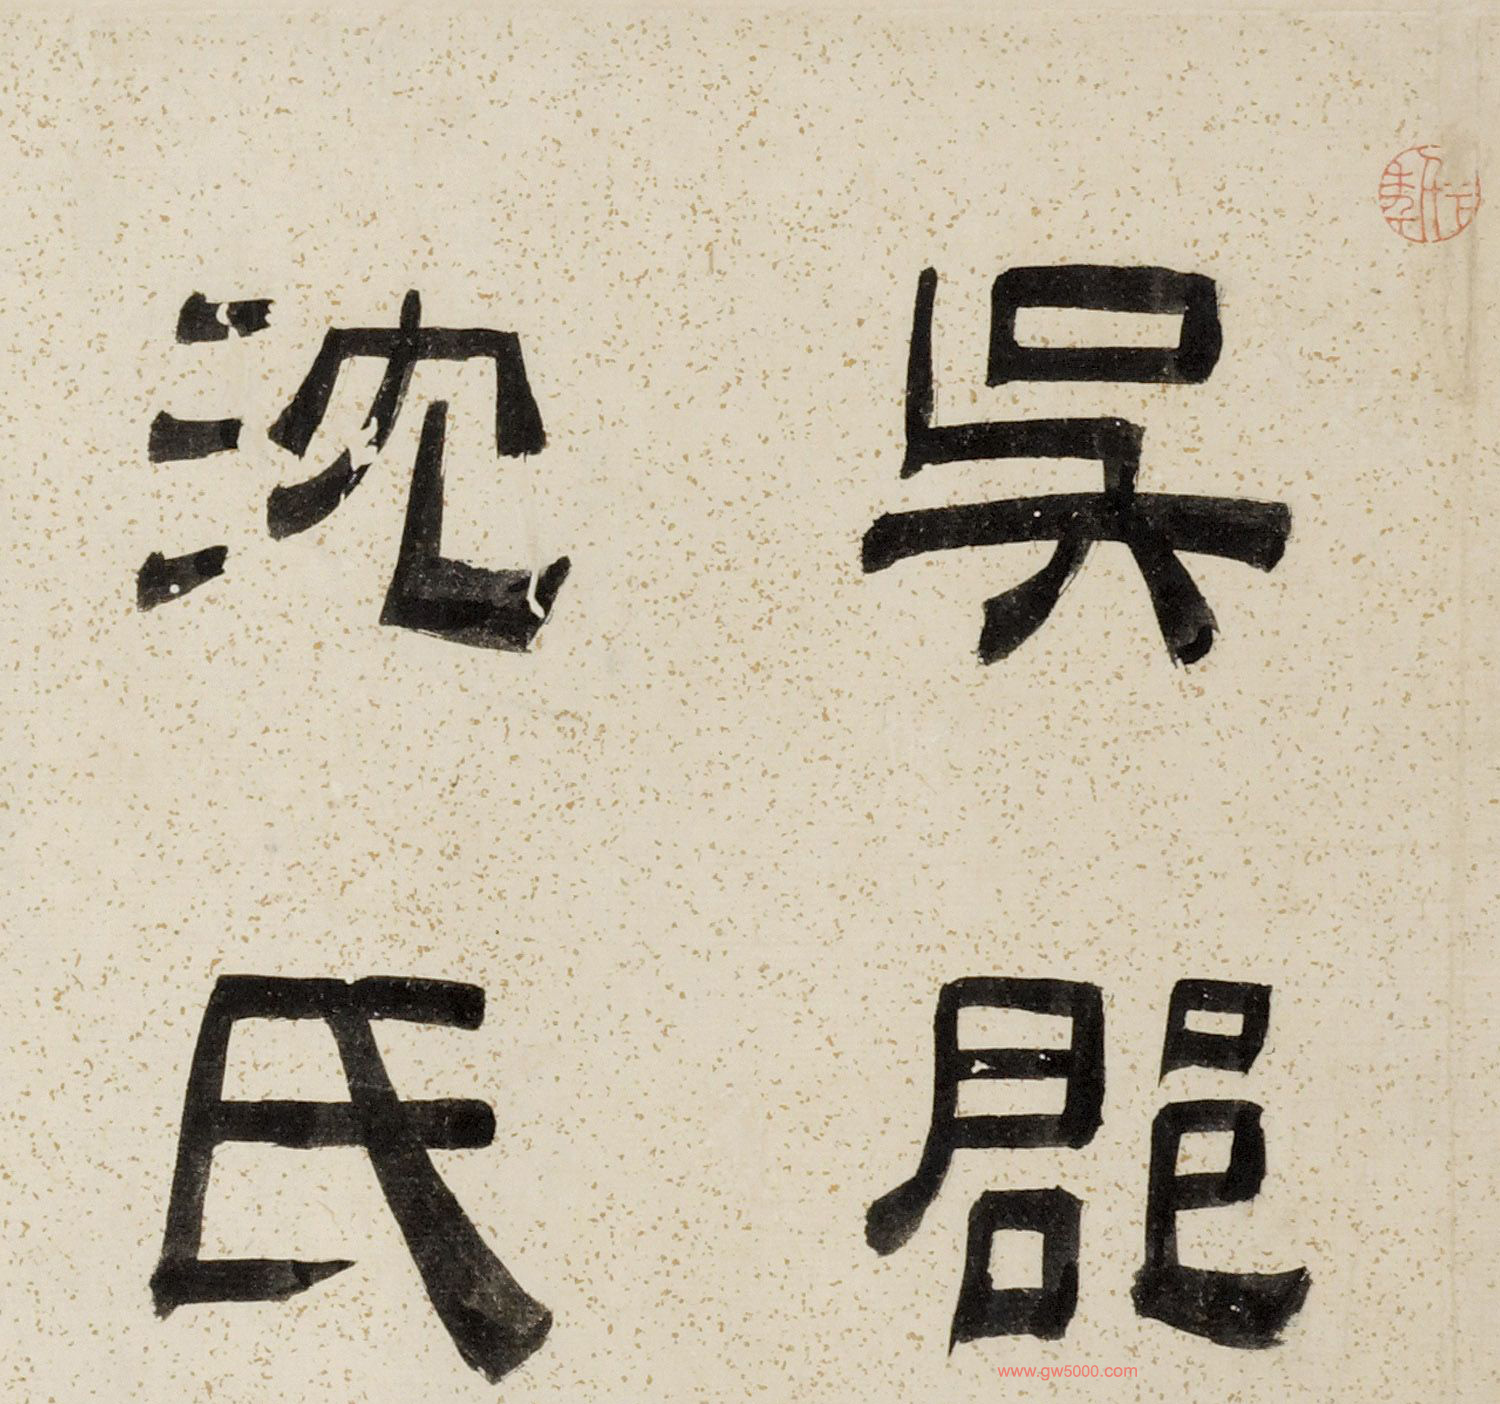 吳郡
沈氏
www.gw5000.com